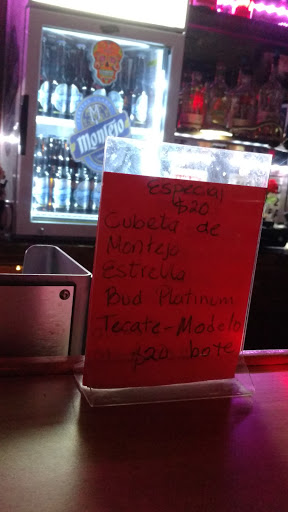 Montejo
Especial
$20
Cubeta de
Montejo
Estrella
Bud Platinum
Tecate-Modelo
$20 bote